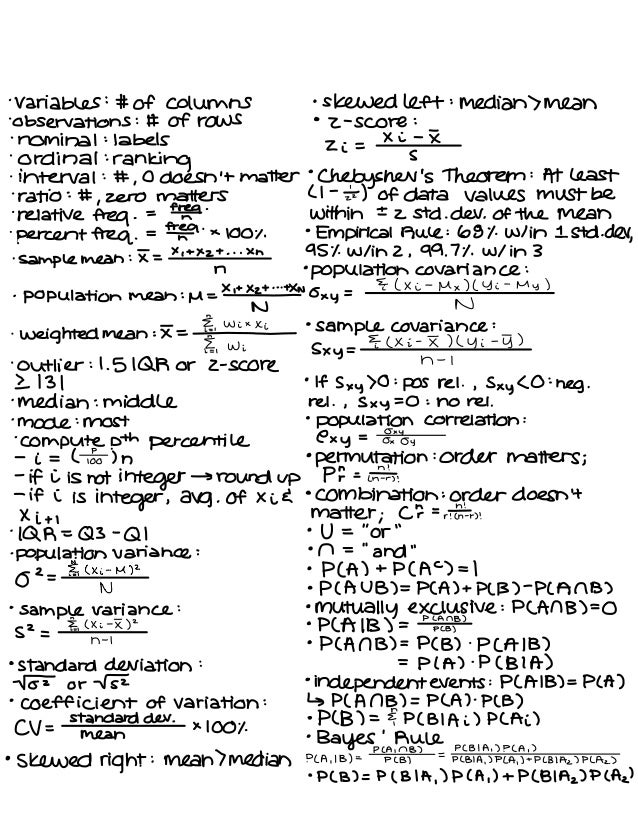 ·variables: # of columns
·observations: # of rows
·nominal: labels
·ordinal: ranking
·interval: #, 0 doesn't matter
·ratio: #, zero matters
·relative freq. = freq./n
·percent freq. = freq./n × 100%
·sample mean: x̄ = (x₁+x₂+...xₙ)/n
·population mean: μ = (x₁+x₂+...+x_N)/N
·weighted mean: x̄ = (Σⁿᵢ₌₁ wᵢ×xᵢ)/(Σⁿᵢ₌₁ wᵢ)
·outlier: 1.5 IQR or z-score
≥ |3|
·median: middle
·mode: most
·compute pth percentile
- i = (p/100)n
- if i is not integer → round up
- if i is integer, avg. of xᵢ &
xᵢ₊₁
·IQR = Q3 - Q1
·population variance:
σ² = (Σⁿᵢ₌₁ (xᵢ-μ)²)/N
·sample variance:
s² = (Σⁿᵢ₌₁ (xᵢ-x̄)²)/(n-1)
·standard deviation:
√σ² or √s²
·coefficient of variation:
CV = (standard dev./mean) × 100%
·skewed right: mean>median
·skewed left: median>mean
·z-score:
zᵢ = (xᵢ - x̄)/s
·Chebyshev's Theorem: At least
(1 - 1/z²) of data values must be
within ± z std. dev. of the mean
·Empirical Rule: 68% w/in 1 std.dev,
95% w/in 2, 99.7% w/in 3
·population covariance:
σxy = (Σᵢ (xᵢ - μₓ)(yᵢ - μy))/N
·sample covariance:
sxy = (Σᵢ (xᵢ - x̄)(yᵢ - ȳ))/(n-1)
·If sxy>0: pos rel., sxy<0: neg.
rel., sxy=0: no rel.
·population correlation:
ρxy = σxy/(σx σy)
·permutation: order matters;
Pⁿᵣ = n!/(n-r)!
·combination: order doesn't
matter; Cⁿᵣ = n!/(r!(n-r)!)
·∪ = "or"
·∩ = "and"
·P(A) + P(Aᶜ) = 1
·P(A∪B) = P(A)+P(B)-P(A∩B)
·mutually exclusive: P(A∩B)=0
·P(A|B) = P(A∩B)/P(B)
·P(A∩B) = P(B)·P(A|B)
= P(A)·P(B|A)
·independent events: P(A|B) = P(A)
↳ P(A∩B) = P(A)·P(B)
·P(B) = Σⁿᵢ P(B|Aᵢ) P(Aᵢ)
·Bayes' Rule
P(A₁|B) = P(A₁∩B)/P(B) = P(B|A₁)P(A₁)/(P(B|A₁)P(A₁)+P(B|A₂)P(A₂))
·P(B) = P(B|A₁)P(A₁)+P(B|A₂)P(A₂)